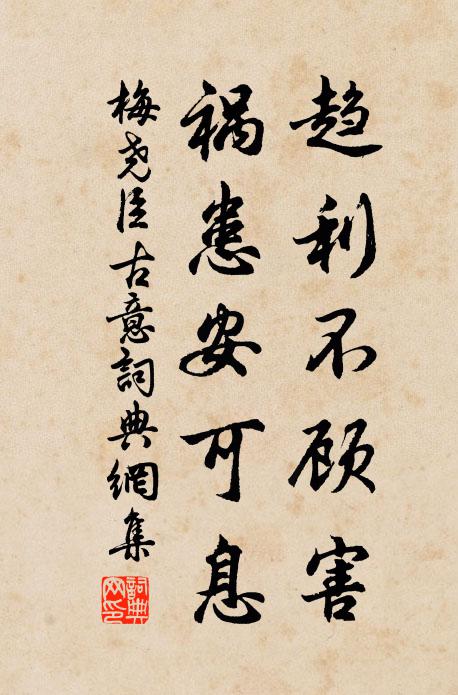 趋利不顾害
祸患安可息
梅尧臣古意詞典網集
詞典网印